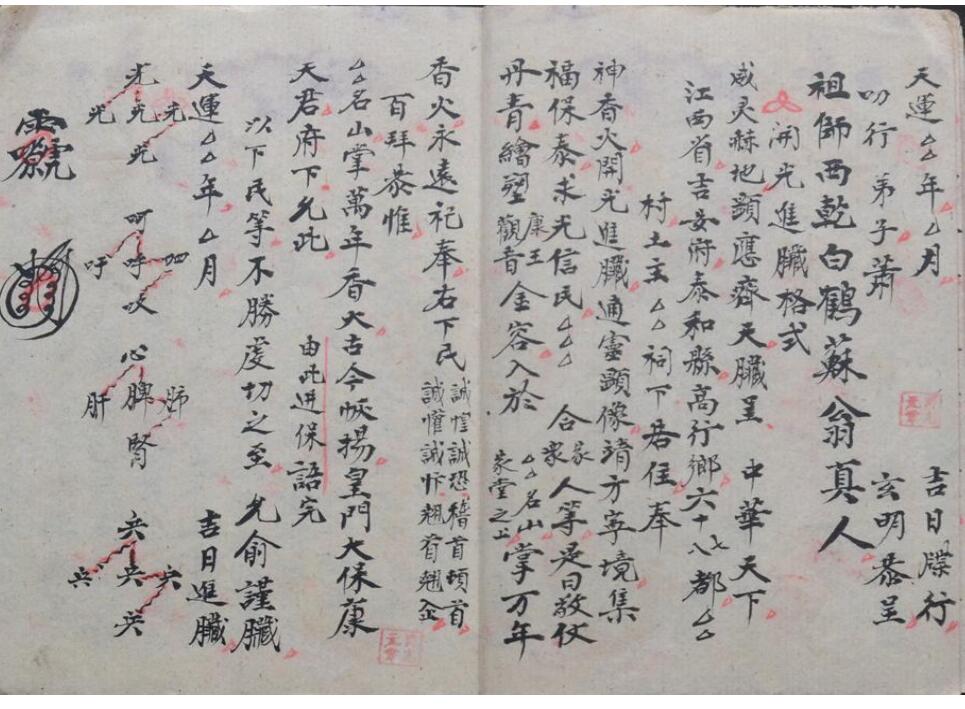 天運厶厶年厶月 吉日牒行
叨行 弟子蕭 玄明恭呈
祖師西乾白鶴蘇翁真人
開光進臟格式
威灵赫地顕應齊天臟呈 中華天下
江西省吉安府泰和縣高行鄉六十七八都厶厶
村土主厶厶祠下居住奉
神香火開光進臟通灵顕像靖方寧境集
福保泰求光信民厶厶厶 合家眾人等是日敬仗
丹青繪塑康王觀音金容入於 厶厶名山掌万年 家堂之上
香火永遠祀奉右下民 誠惶誠恐稽首頓首 誠懽誠忭翹首翹企
百拜恭惟
厶厶名山掌萬年香火古今恢揚皇門大保康
天君府下允此 由此進保語完
以下民等不勝虔切之至 允俞謹臟
天運厶厶年厶月 吉日進臟
光 光光光 光
呵 呬呼吹 呼
心 肺脾肝 腎
兵 兵兵兵 兵